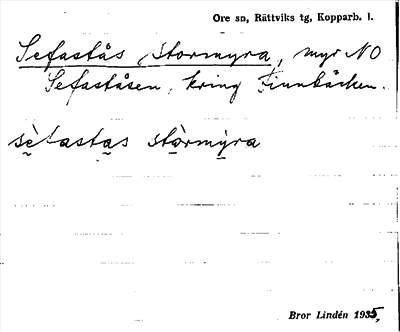 Ore sn, Rättviks tg, Kopparb. l.
Sefastås Stormyra, myr NO
Sefaståsen, kring Finnbäcken.
sèfastas stòrmýra
Bror Lindén 1935,